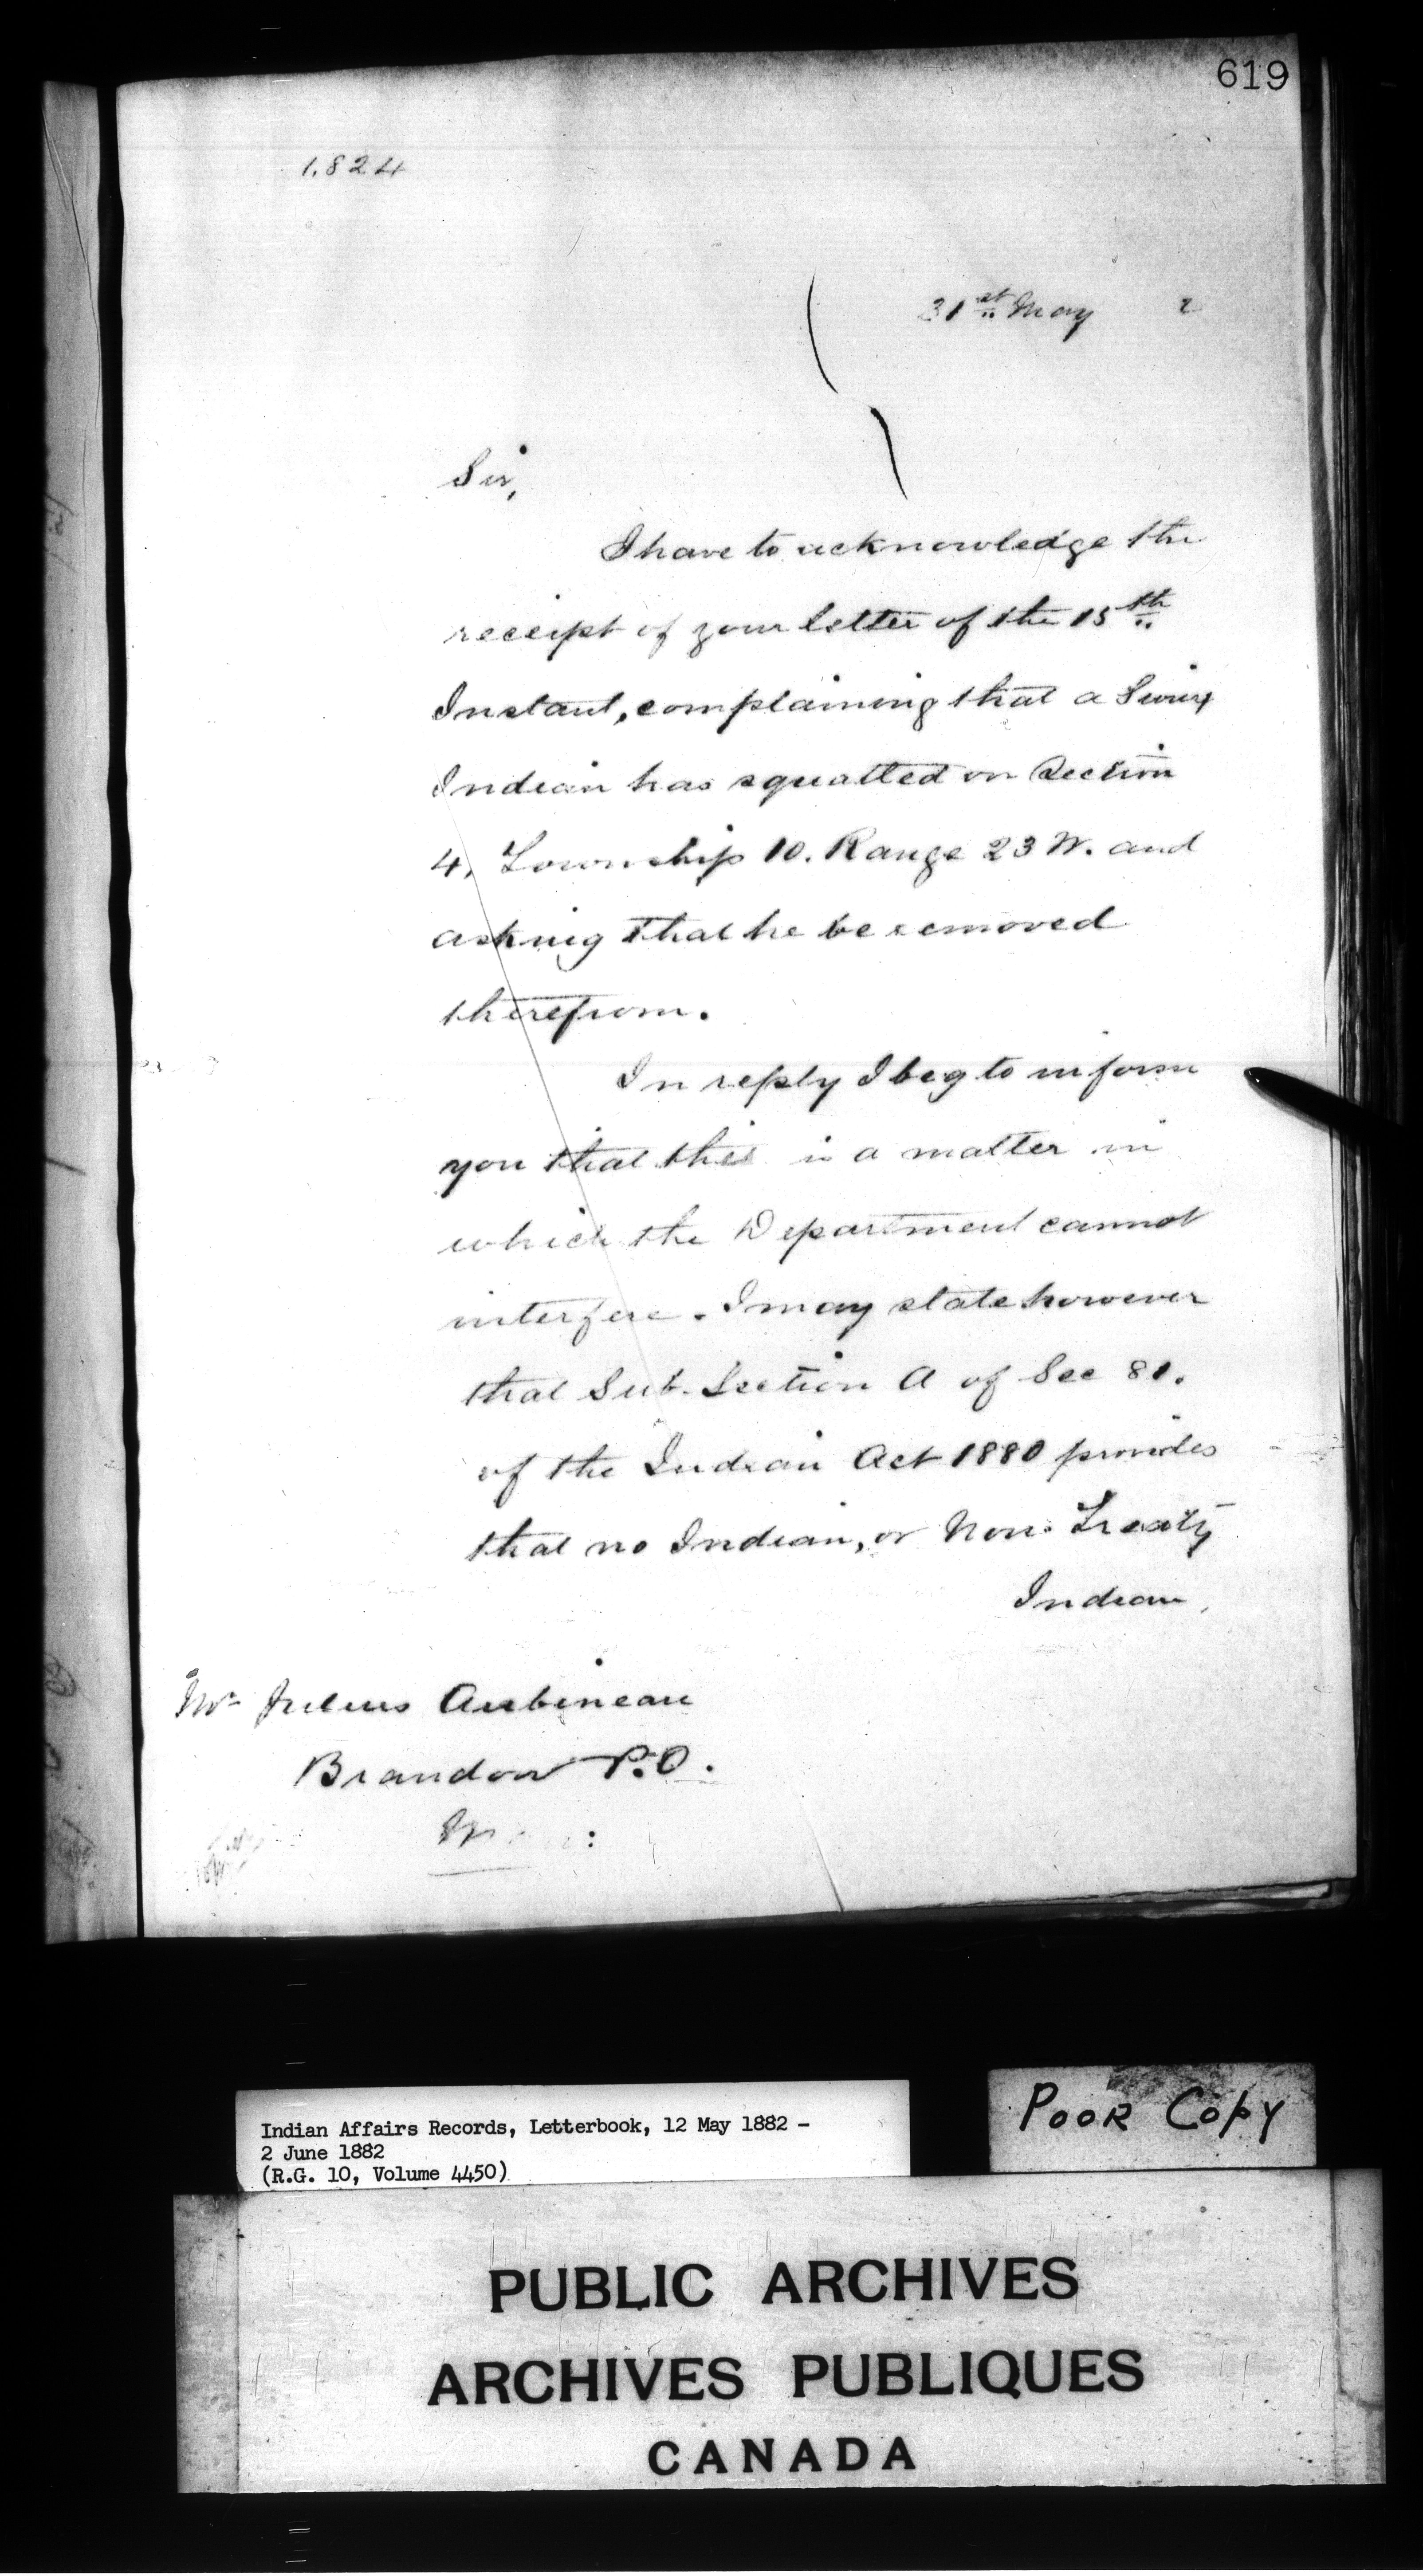 619
1.824
31st May 2
Sir,
I have to acknowledge the
receipt of your letter of the 15th
Instant, complaining that a Sioux
Indian has squatted on Section
4, Township 10. Range 23 W. and
asking that he be removed
therefrom.
In reply I beg to inform
you that this is a matter in
which the Department cannot
interfere. I may state however
that Sub. Section A of Sec 81.
of the Indian Act 1880 provides
that no Indian, or Non-Treaty
Indian,
Mr Julius Aubineau
Brandon P.O.
Indian Affairs Records, Letterbook, 12 May 1882 -
2 June 1882
(R.G. 10, Volume 4450)
POOR COPY
PUBLIC ARCHIVES
ARCHIVES PUBLIQUES
CANADA